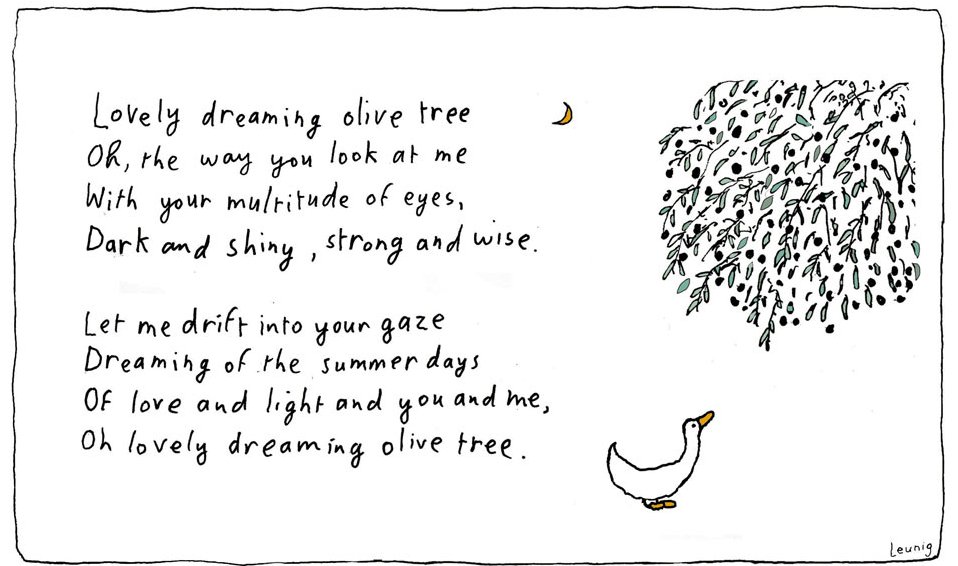 Lovely dreaming olive tree
Oh, the way you look at me
With your multitude of eyes,
Dark and shiny, strong and wise.
Let me drift into your gaze
Dreaming of the summer days
Of love and light and you and me,
Oh lovely dreaming olive tree.
Leunig